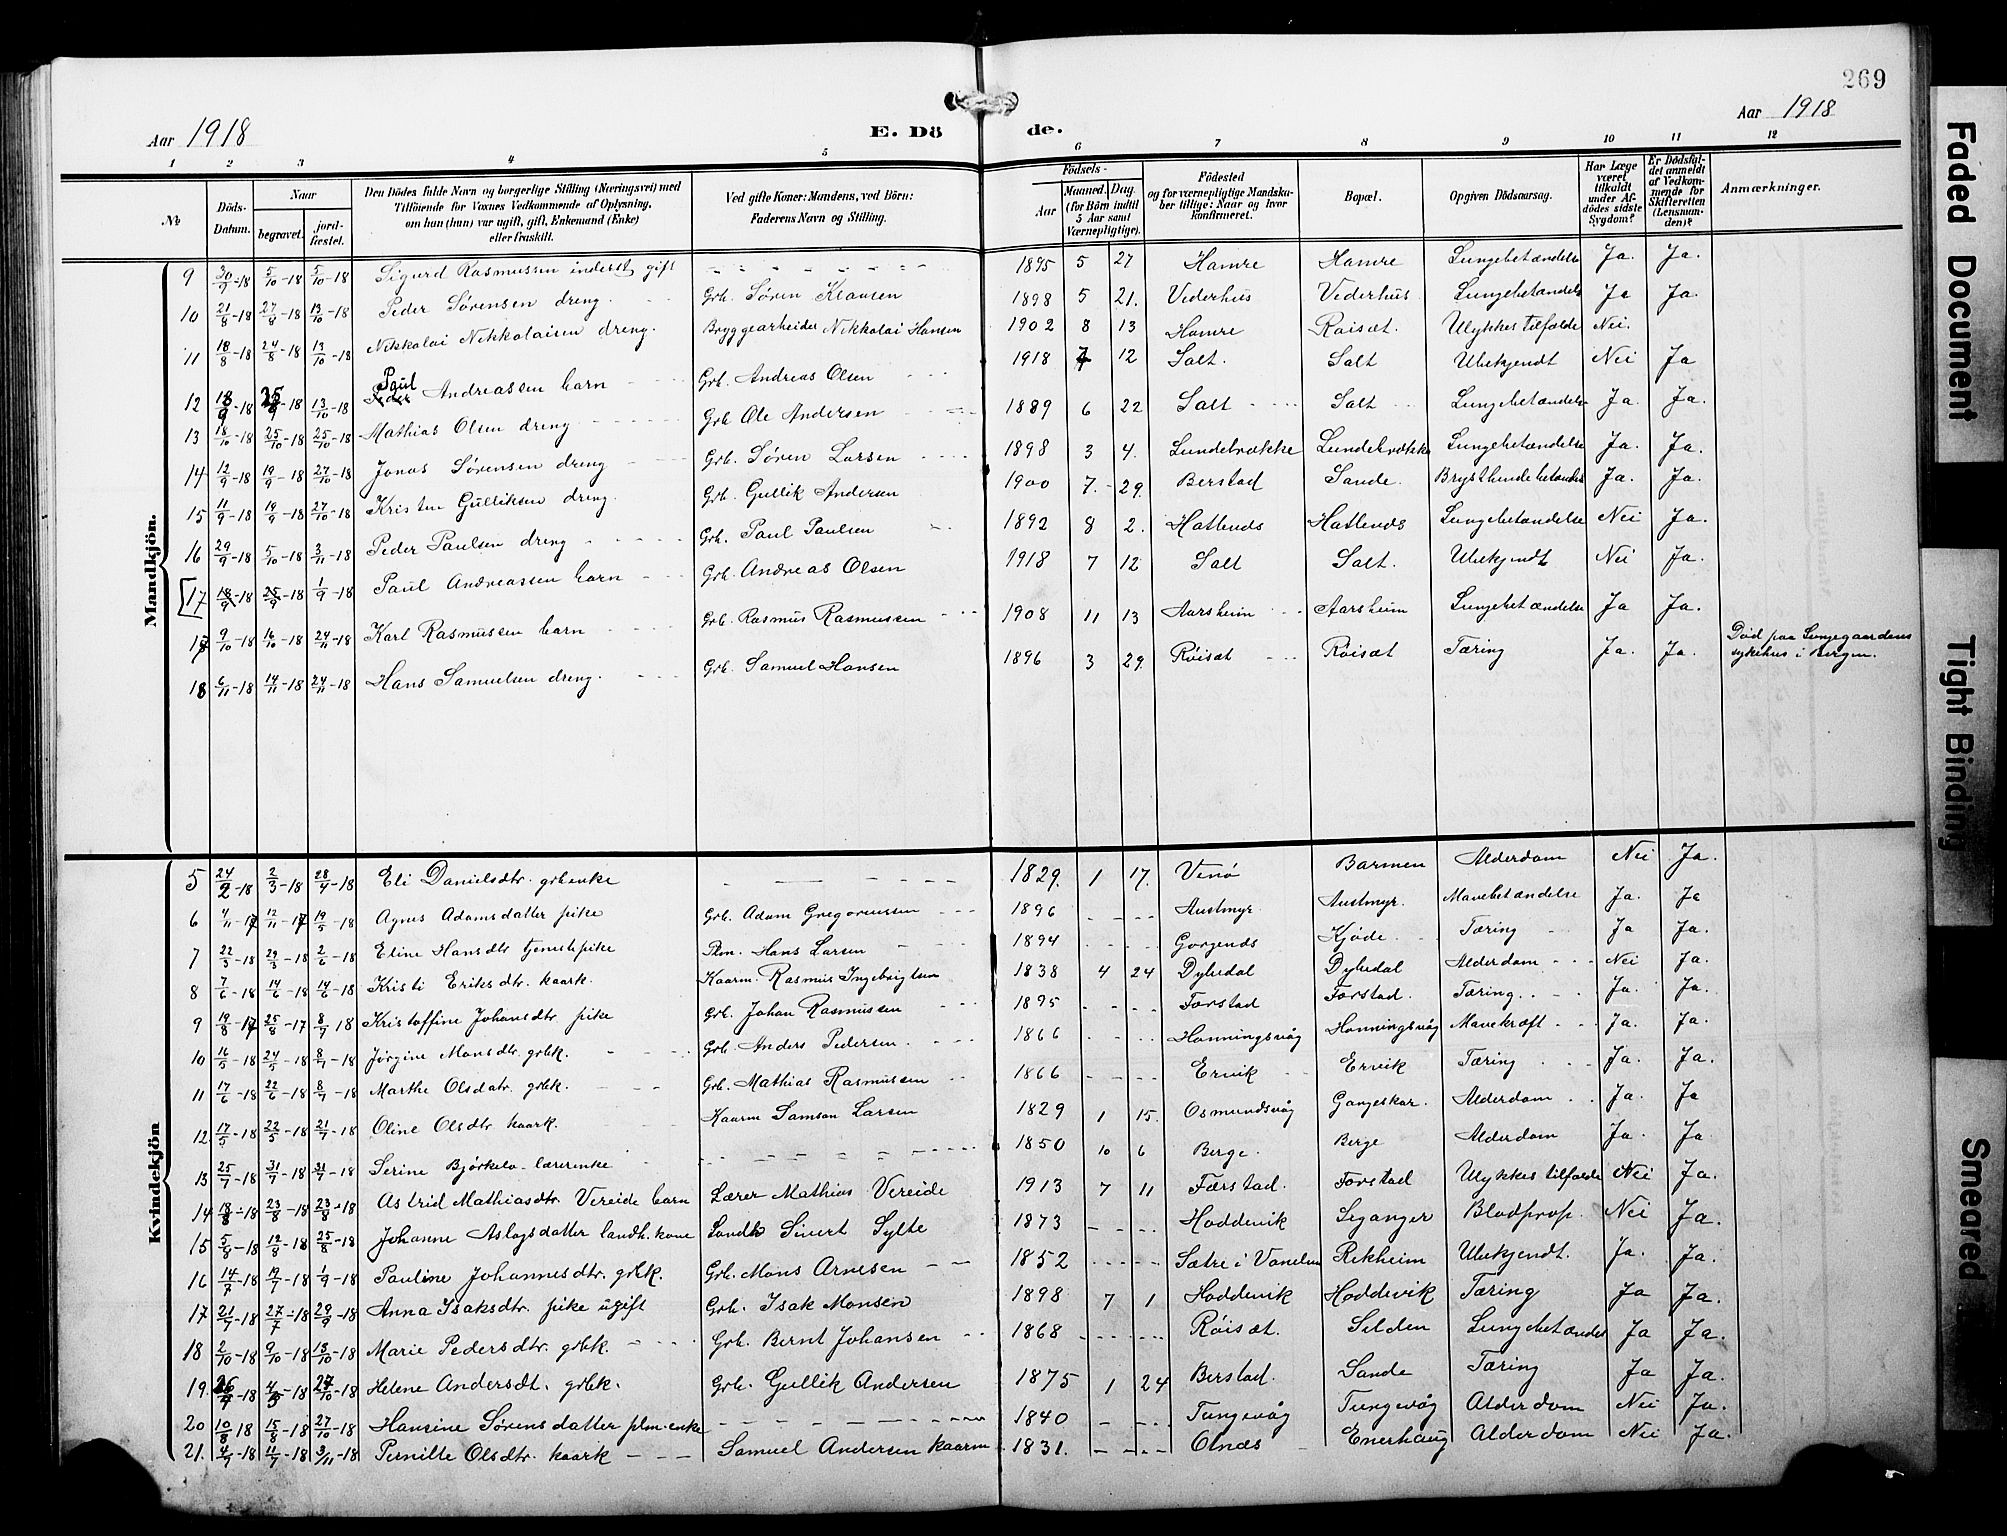 269
Aar 1918
E. Dö de.
Aar 1918
1 2 3 4 5 6 7 8 9 10 11 12
No
Döds-Datum.
Naar
begravet.
jord-fæstet.
Den Dödes fulde Navn og borgerlige Stilling (Næringsvei) med
Tilföiende for Voxnes Vedkommende af Oplysning,
om han (hun) var ugift, gift, Enkemand (Enke)
eller fraskilt.
Ved gifte Koner: Mandens, ved Börn:
Faderens Navn og Stilling.
Födsels-
Aar
Maaned. Dag.
(for Börn indtil
5 Aar samt
Værnepligtige).
Födested
og for værnepligtige Mandska-
ber tillige: Naar og hvor
konfirmeret.
Bopæl.
Opgiven Dödsaarsag.
Har Læge
været
tilkaldt
under Af-
dödes sidste
Sygdom?
Er Dödsfal-
det anmeldt
af Vedkom-
mende for
Skifteretten
(Lensman-
den)?
Anmærkninger.
Mandkjön.
9 30/9-18 5/10-18 5/10-18 Sigurd Rasmussen inderst gift 1895 5 27 Hamre Hamre Lungebetændelse Ja. Ja.
10 21/8-18 27/8-18 13/10-18 Peder Sørensen dreng. Grb. Søren Klausen 1898 5 21. Vederhus Vederhus Lungebetændelse Ja Ja.
11 18/8-18 24/8-18 13/10-18 Nikkolai Nikkolaisen dreng. Bryggearbeider Nikkolai Hansen 1902 8 13 Hamre Røisæt. Ulykkestilfælde Nei.
12 18/9-18 25/9-18 13/10-18 Paul Andreassen barn Grb. Andreas Olsen 1918 7 12 Salt. Salt Ubekjendt Nei Ja
13 18/10-18 25/10-18 25/10-18 Mathias Olsen dreng Grb Ole Andersen 1889 6 22 Salt Salt Lungebetændelse Ja. Ja.
14 12/9-18 19/9-18 27/10-18 Jonas Sørensen dreng Grb. Søren Larsen 1898 3 4. Lundebrække Lundebrække Lungebetændelse Ja. Ja.
15 11/9-18 19/9-18 27/10-18 Kristen Gulliksen dreng. Grb. Gullik Andersen 1900 7. 29. Berstad Sande. Brysthindebetændelse Ja. Ja.
16 29/9-18 5/10-18 3/11-18 Peder Paulsen dreng Grb. Paul Paulsen 1892 8 2. Hatlenes Hatlenes Lungebetændelse Nei Ja.
[17 18/9-18 25/9-18 1/9-18 Paul Andreassen barn Grb. Andreas Olsen 1918 7 12 Salt Salt. Ubekjendt Nei Ja.
17 9/10-18 16/10-18 24/11-18 Karl Rasmussen barn Grb. Rasmus Rasmussen 1908 11 13 Aarsheim Aarsheim Lungebetændelse Ja Ja.
18 6/11-18 14/11-18 24/11-18 Hans Samuelsen dreng. Grb. Samuel Hansen 1896 3 29. Røisæt Røisæt Tæring Ja. Ja. Død paa Lungegaardens
sykehus i Bergen.
Kvindekjön
5 24/2-18 2/3-18 28/4-18 Eli Danielsdtr. grb enke 1829. 1 17. Venø Barmen Alderdom Nei Ja.
6 4/11-17 12/11-17 19/5-18 Agnes Adamsdatter pike Grb. Adam Gregoriussen 1896 Austmyr. Austmyr. Mavebetændelse Ja. Ja
7 22/3-18 29/3-18 2/6-18 Eline Hansdtr tjenestepike Plm. Hans Larsen 1894 Gorgenes Kjøde. Tæring Ja Ja.
8 7/6-18 14/6-18 14/6-18 Kristi Eriksdtr. kaark. Kaarm. Rasmus Ingebrigtsen 1838 4 24 Dybedal Dybedal Alderdom Nei Ja.
9 19/8-17 25/8-17 8/7 18 Kristoffine Johansdtr pike Grb. Johan Rasmussen 1895 Forstad Forstad. Tæring. Ja. Ja.
10 16/5-18 24/5-18 8/7-18 Jørgine Monsdtr. grbk. Grb. Anders Pedersen. 1866 Honningsvåg Honningsvåg Mavekræft Ja. Ja.
11 17/6-18 22/6-18 8/7-18 Marthe Olsdatr. grbk. Grb. Mathias Rasmussen 1866 Ervik Ervik Tæring Ja. Ja.
12 17/5-18 22/5-18 21/7-18 Oline Olsdtr kaark. Kaarm Samson Larsen 1829 1 15. Osmundsvåg Gangeskar. Alderdom Ja. Ja
13 25/7-18 31/7-18 31/7-18 Serine Bjørkelo lærerenke 1850 10 6 Berge. Berge Alderdom Ja. Ja
14 18/8-18 23/8-18 23/8-18 Astrid Mathiasdtr Vereide barn Lærer Mathias Vereide 1913 7 11 Færstad. Forstad Ulykkestilfælde Nei Ja.
15 5/8-18 12/8-18 25/8-18 Johanne Aslagsdatter landh. kone Landh Sivert Sylte 1873 Hoddevik Seganger Blodprop. Nei Ja.
16 14/7-18 19/7-18 1/9-18 Pauline Johannesdtr. grbk. Grb. Mons Arnesen 1852 Sætre i Vanelven Rekheim Ubekjendt. Ja. Ja.
17 21/7-18 27/7-18 29/9-18 Anna Isaksdtr. pike ugift Grb. Isak Monsen 1898 7 1 Hoddevik Hoddevik Tæring Ja Ja.
18 2/10-18 9/10-18 13/10-18 Marie Pedersdtr. grbk. Grb. Bernt Johansen 1868 Røisæt. Selden Lungebetændelse Ja Ja.
19. 26/4-18 4/5-18 27/10-18 Helene Andersdt. grbk. Grb. Gullik Andersen 1875 1 24 Berstad. Sande Tæring Ja Ja.
20 10/8 18 15/8-18 27/10-18 Hansine Sørensdatter plm-enke 1840 Tungevåg Tungevåg Alderdom Nei Ja.
21. 4/7-18 11/7-18 3/11-18 Pernille Olsdtr. kaark Samuel Andersen kaarm 1831. Olnæs Enerhaug Alderdom Nei Ja.
Faded Document
Tight Binding
Smeared